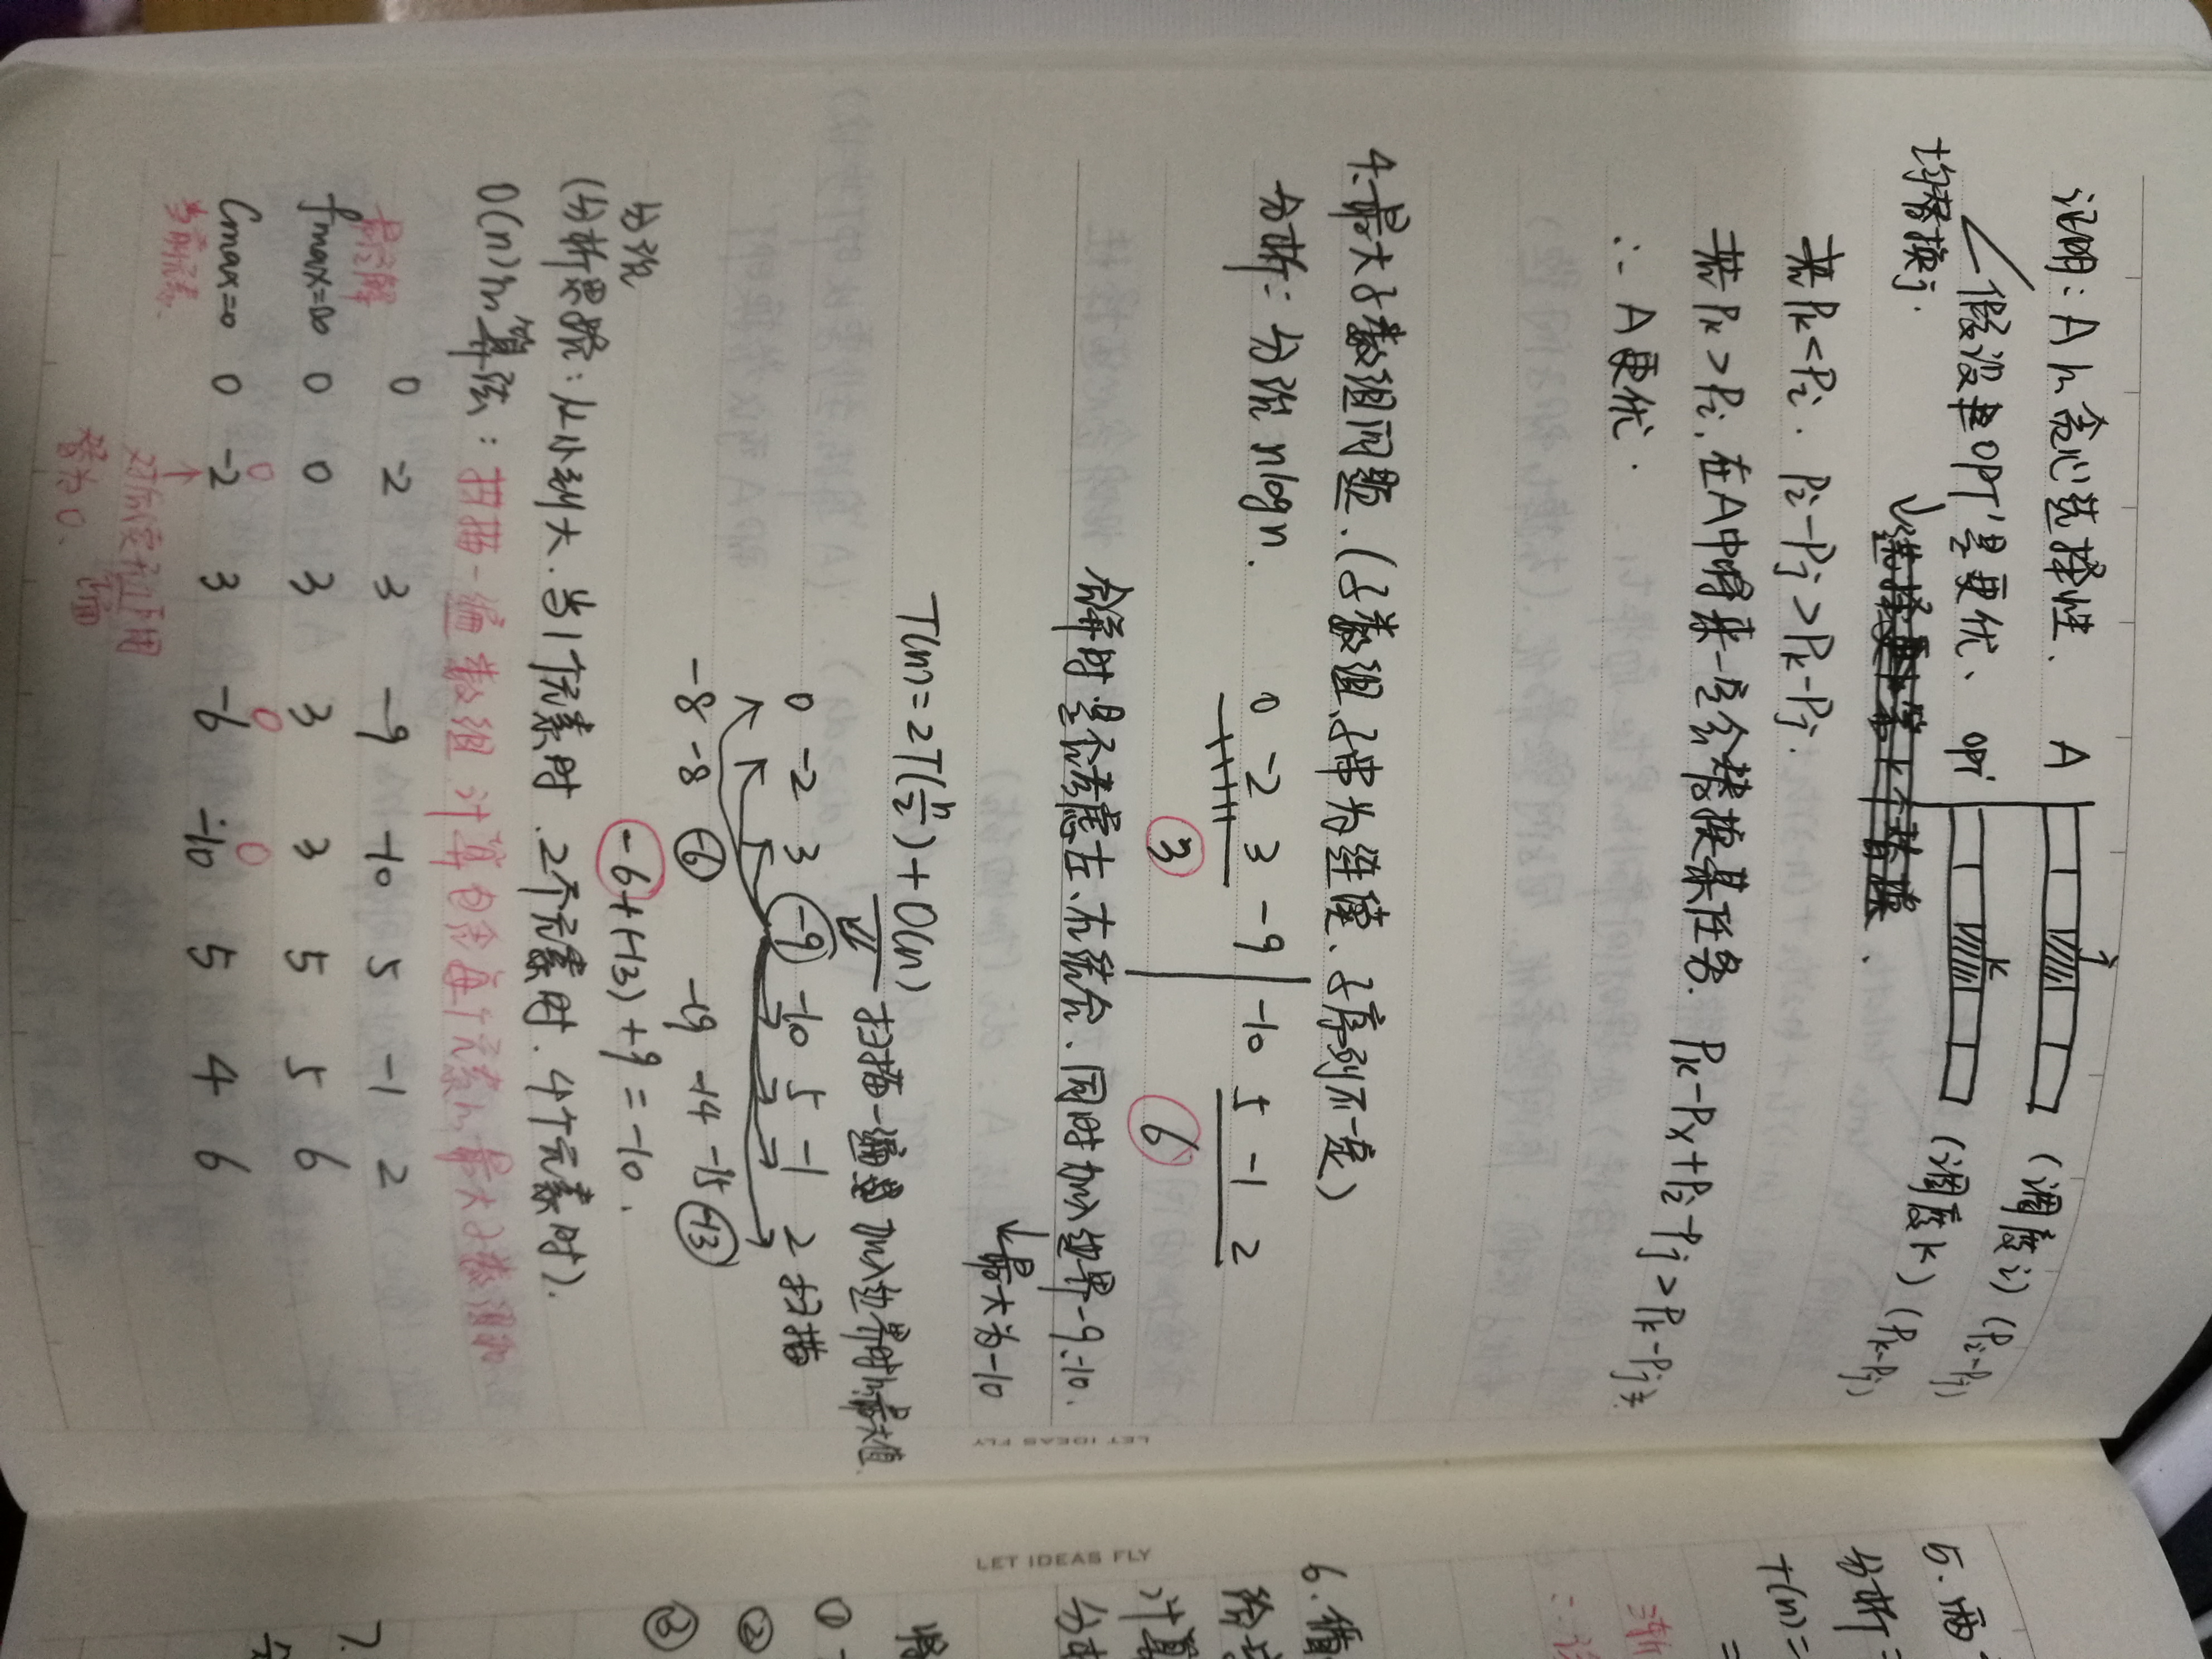 证明: A的贪心选择性.
A
j
(调度i) (Pi-Pj)
假设OPT'是更优、
OPT'
k
(调度k) (Pk-Pj)
均替换j.
↓选择更k第k个替换.
若Pk<Pi. Pi-Pj>Pk-Pj.
若Pk>Pi, 在A中将来一定会替换某任务. Pk-Px+Pi-Pj>Pk-Pj
∴ A更优.
4.最大子数组问题.(子数组、子串为连续、子序列不一定)
分析: 分治 nlogn.
0 -2 3 -9 | -10 5 -1 2
3 6
合并时是否考虑左、右结合、同时加入边界-9、-10.
↓最大为-10
T(n)=2T(n/2)+O(n)
扫描一遍 加入边界时的最大值
0 -2 3 -9 -10 5 -1 2 扫描
-8 -8 -6 -19 -14 -15 -13
-6+(-13)+9=-10.
分治
(分析思路: 从小到大.当1个元素时.2个元素时.4个元素时).
O(n)的算法: 扫描一遍数组.计算包含每个元素的最大子数组和
0 -2 3 -9 -10 5 -1 2
最终解
fmax=∞ 0 0 3 3 3 5 5 6
0 0 0
Cmax=0 0 -2 3 -6 -10 5 4 6
当前元素.
↑
对后续无正作用
正面
替为0.
LET IDEAS FLY
LET IDEAS FLY
5. 两
分析
T(n)=
=
渐
∴该
6. 循
给定
计算
分析
将
①
②
③
7.